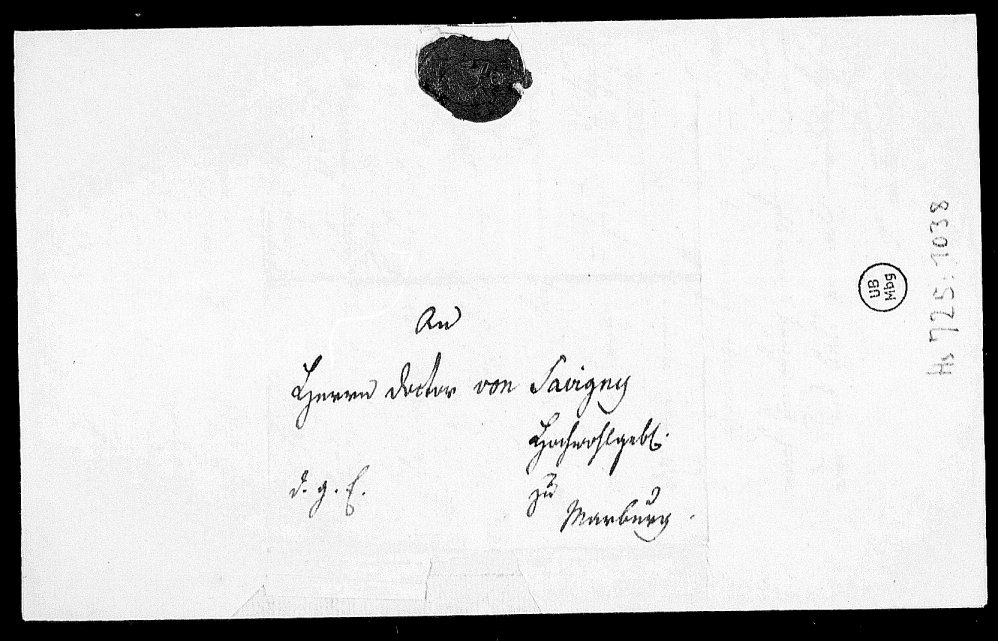 An
Herrn Doctor von Savigny
Hochwohlgeb.
d. g. E.
zu
Marburg.
UB
Mbg
Hs 725:1038